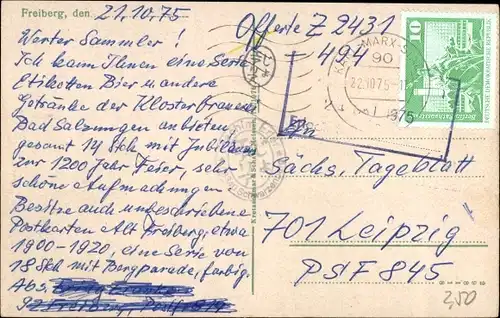 Freiberg, den 21.10.75
Werter Sammler!
Ich kann Ihnen eine Serie
Etiketten Bier u. andere
Getränke der Klosterbrauerei
Bad Salzungen anbieten
gesamt 14 Stck mit Jubiläum
zur 1200 Jahr Feier, sehr
schöne Aufmachungen
Besitze auch unbeschriebene
Postkarten Alt Freiberg, etwa
1900-1920, eine Serie von
18 Stck mit Bergparade, farbig.
Abs.
92 Freiberg, Postf.
Offerte Z 2431
494
MARX-S
90
22.10.75
10
DEUTSCHE DEMOKRATISCHE REPUBLIK
An
Sächs. Tageblatt
701 Leipzig
PSF 845
2,50